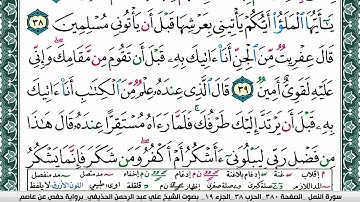 يَـٰٓأَيُّهَا ٱلْمَلَؤُا۟ أَيُّكُمْ يَأْتِينِى بِعَرْشِهَا قَبْلَ أَن يَأْتُونِى مُسْلِمِينَ ٣٨
قَالَ عِفْرِيتٌ مِّنَ ٱلْجِنِّ أَنَا۠ ءَاتِيكَ بِهِۦ قَبْلَ أَن تَقُومَ مِن مَّقَامِكَ ۖ وَإِنِّى
عَلَيْهِ لَقَوِىٌّ أَمِينٌ ٣٩ قَالَ ٱلَّذِى عِندَهُۥ عِلْمٌ مِّنَ ٱلْكِتَـٰبِ أَنَا۠ ءَاتِيكَ
بِهِۦ قَبْلَ أَن يَرْتَدَّ إِلَيْكَ طَرْفُكَ ۚ فَلَمَّا رَءَاهُ مُسْتَقِرًّا عِندَهُۥ قَالَ هَـٰذَا
مِن فَضْلِ رَبِّى لِيَبْلُوَنِىٓ ءَأَشْكُرُ أَمْ أَكْفُرُ ۖ وَمَن شَكَرَ فَإِنَّمَا يَشْكُرُ
سورة النمل الصفحة ٣٨٠ الحزب ٣٨ الجزء ١٩ بصوت الشيخ علي عبد الرحمن الحذيفي برواية حفص عن عاصم